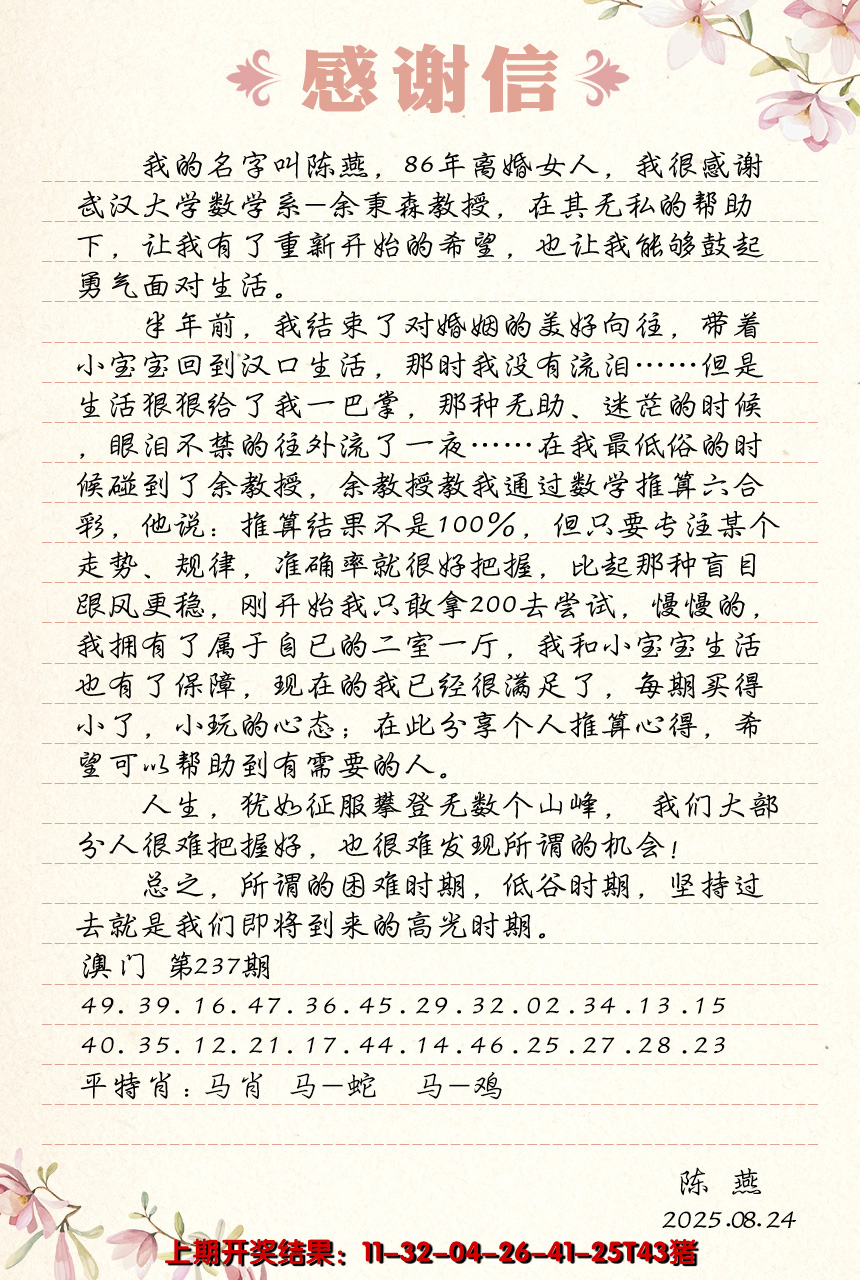 感谢信
我的名字叫陈燕，86年离婚女人，我很感谢
武汉大学数学系—余秉森教授，在其无私的帮助
下，让我有了重新开始的希望，也让我能够鼓起
勇气面对生活。
半年前，我结束了对婚姻的美好向往，带着
小宝宝回到汉口生活，那时我没有流泪……但是
生活狠狠给了我一巴掌，那种无助、迷茫的时候
，眼泪不禁的往外流了一夜……在我最低俗的时
候碰到了余教授，余教授教我通过数学推算六合
彩，他说：推算结果不是100%，但只要专注某个
走势、规律，准确率就很好把握，比起那种盲目
跟风更稳，刚开始我只敢拿200去尝试，慢慢的，
我拥有了属于自已的二室一厅，我和小宝宝生活
也有了保障，现在的我已经很满足了，每期买得
小了，小玩的心态；在此分享个人推算心得，希
望可以帮助到有需要的人。
人生，犹如征服攀登无数个山峰， 我们大部
分人很难把握好，也很难发现所谓的机会！
总之，所谓的困难时期，低谷时期，坚持过
去就是我们即将到来的高光时期。
澳门 第237期
49.39.16.47.36.45.29.32.02.34.13.15
40.35.12.21.17.44.14.46.25.27.28.23
平特肖：马肖 马—蛇 马—鸡
陈 燕
2025.08.24
上期开奖结果：11-32-04-26-41-25T43猪